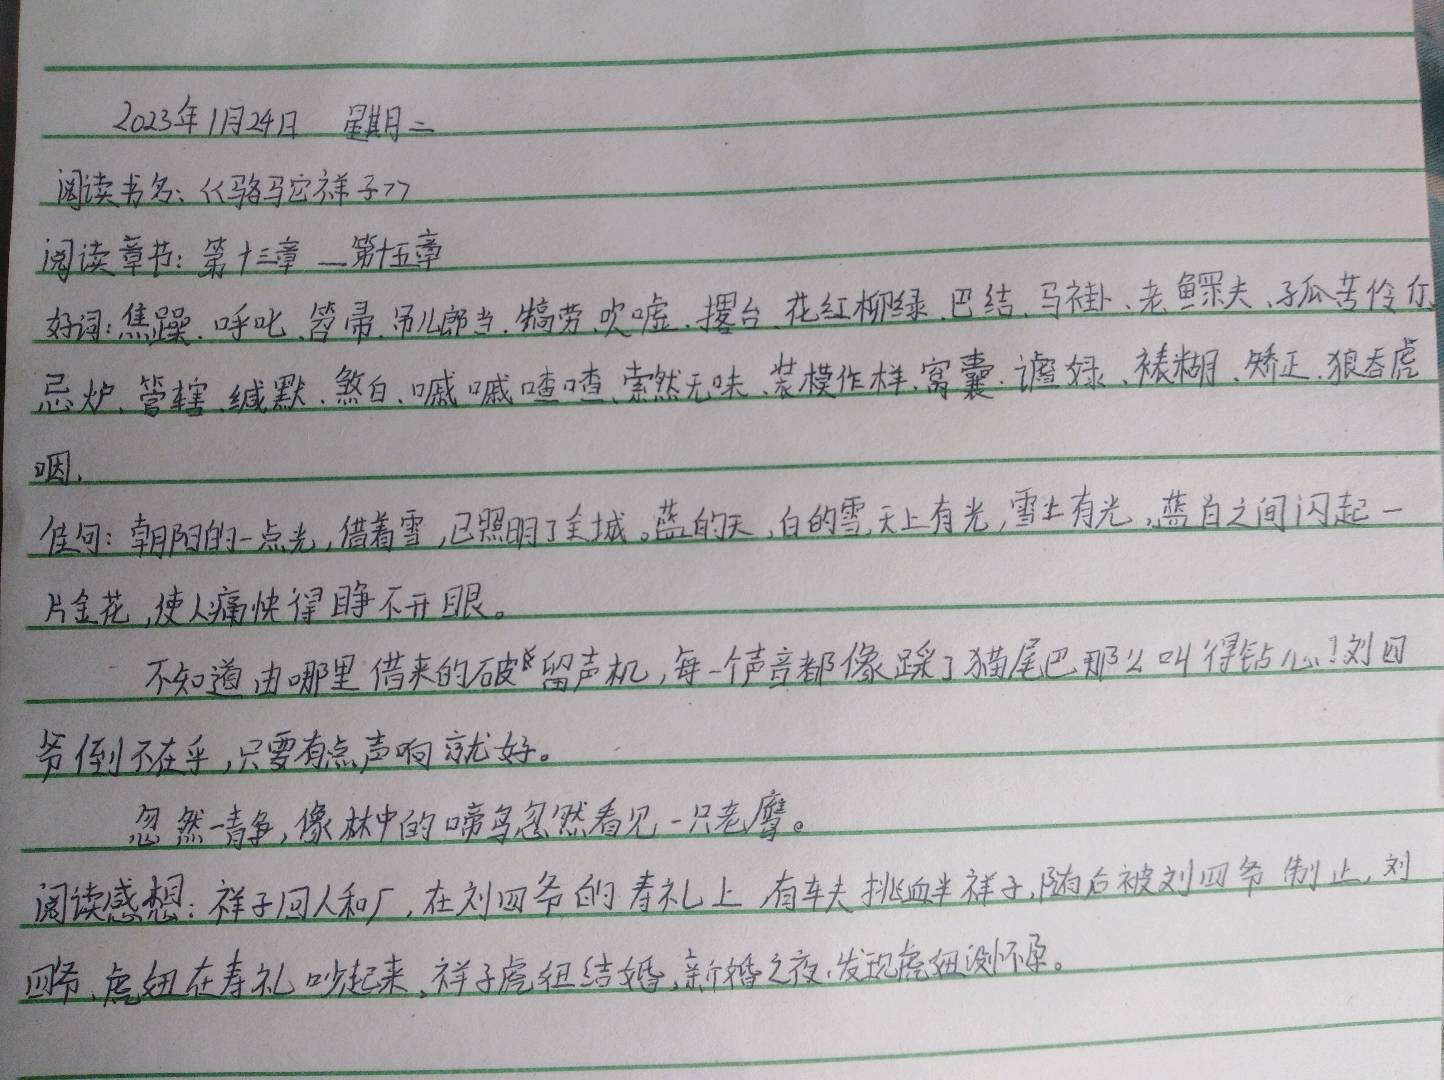 2023年1月24日 星期二
阅读书名:《骆驼祥子》
阅读章节:第十三章—第十五章
好词:焦躁、呼叱、笤帚、吊儿郎当、犒劳、吹嘘、撂台、花红柳绿、巴结、马褂、老鳏夫、孤苦伶仃
忌妒、管辖、缄默、煞白、嘁嘁喳喳、索然无味、装模作样、窝囊、裱糊、矫正、狼吞虎
咽.
佳句:朝阳的一点光,借着雪,已照明了全城。蓝的天,白的雪,天上有光,雪上有光,蓝白之间闪起一
片金花,使人痛快得睁不开眼。
不知道由哪里借来的破留声机,每一个声音都像踩了猫尾巴那么叫得钻心!刘四
爷倒不在乎,只要有点声响就好。
忽然一静,像林中的啼鸟忽然看见一只老鹰。
阅读感想:祥子回人和厂,在刘四爷的寿礼上有车夫挑衅祥子,随后被刘四爷制止,刘
四爷、虎妞在寿礼吵起来,祥子虎妞结婚,新婚之夜,发现虎妞没怀孕。